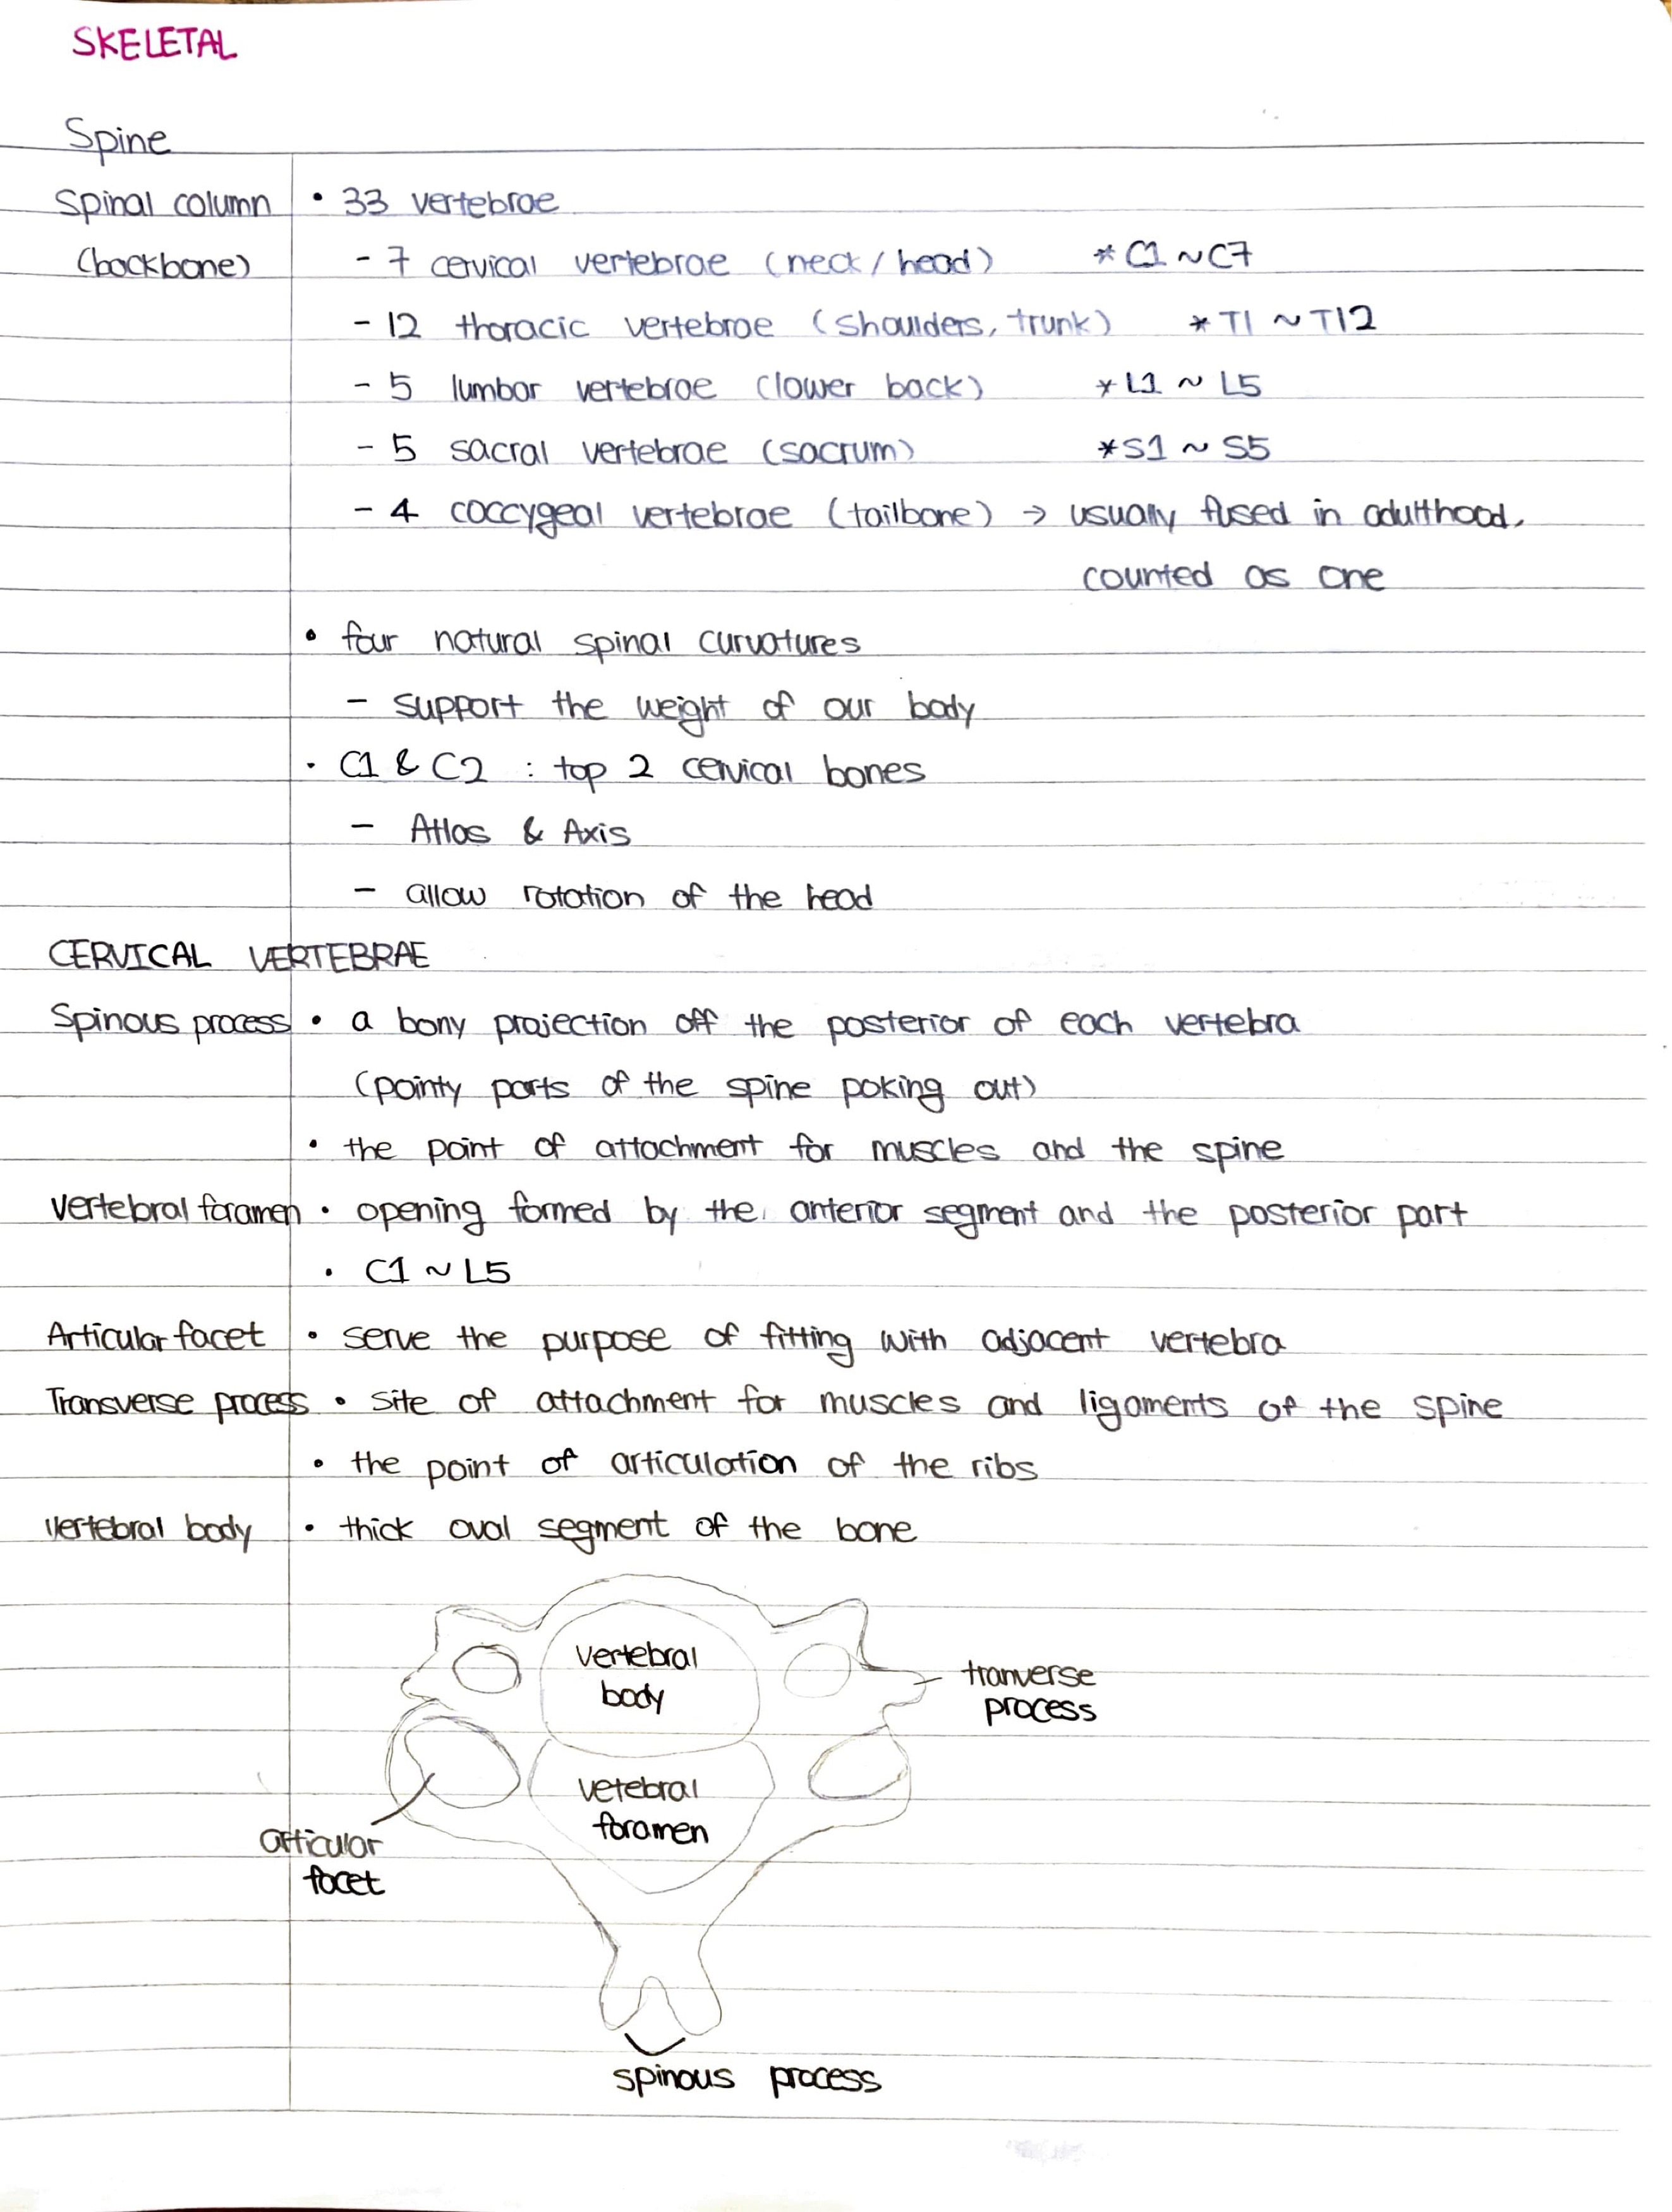 SKELETAL
Spine
Spinal column • 33 vertebrae
(backbone) - 7 cervical vertebrae (neck / head) * C1 ~ C7
- 12 thoracic vertebrae (shoulders, trunk) * T1 ~ T12
- 5 lumbar vertebrae (lower back) * L1 ~ L5
- 5 sacral vertebrae (sacrum) * S1 ~ S5
- 4 coccygeal vertebrae (tailbone) → usually fused in adulthood,
counted as one
• four natural spinal curvatures
- support the weight of our body
• C1 & C2 : top 2 cervical bones
- Atlas & Axis
- allow rotation of the head
CERVICAL VERTEBRAE
Spinous process • a bony projection off the posterior of each vertebra
(pointy parts of the spine poking out)
• the point of attachment for muscles and the spine
Vertebral foramen • opening formed by the anterior segment and the posterior part
• C1 ~ L5
Articular facet • serve the purpose of fitting with adjacent vertebra
Transverse process • site of attachment for muscles and ligaments of the spine
• the point of articulation of the ribs
Vertebral body • thick oval segment of the bone
vertebral
body
tranverse
process
vetebral
foramen
articular
facet
spinous process